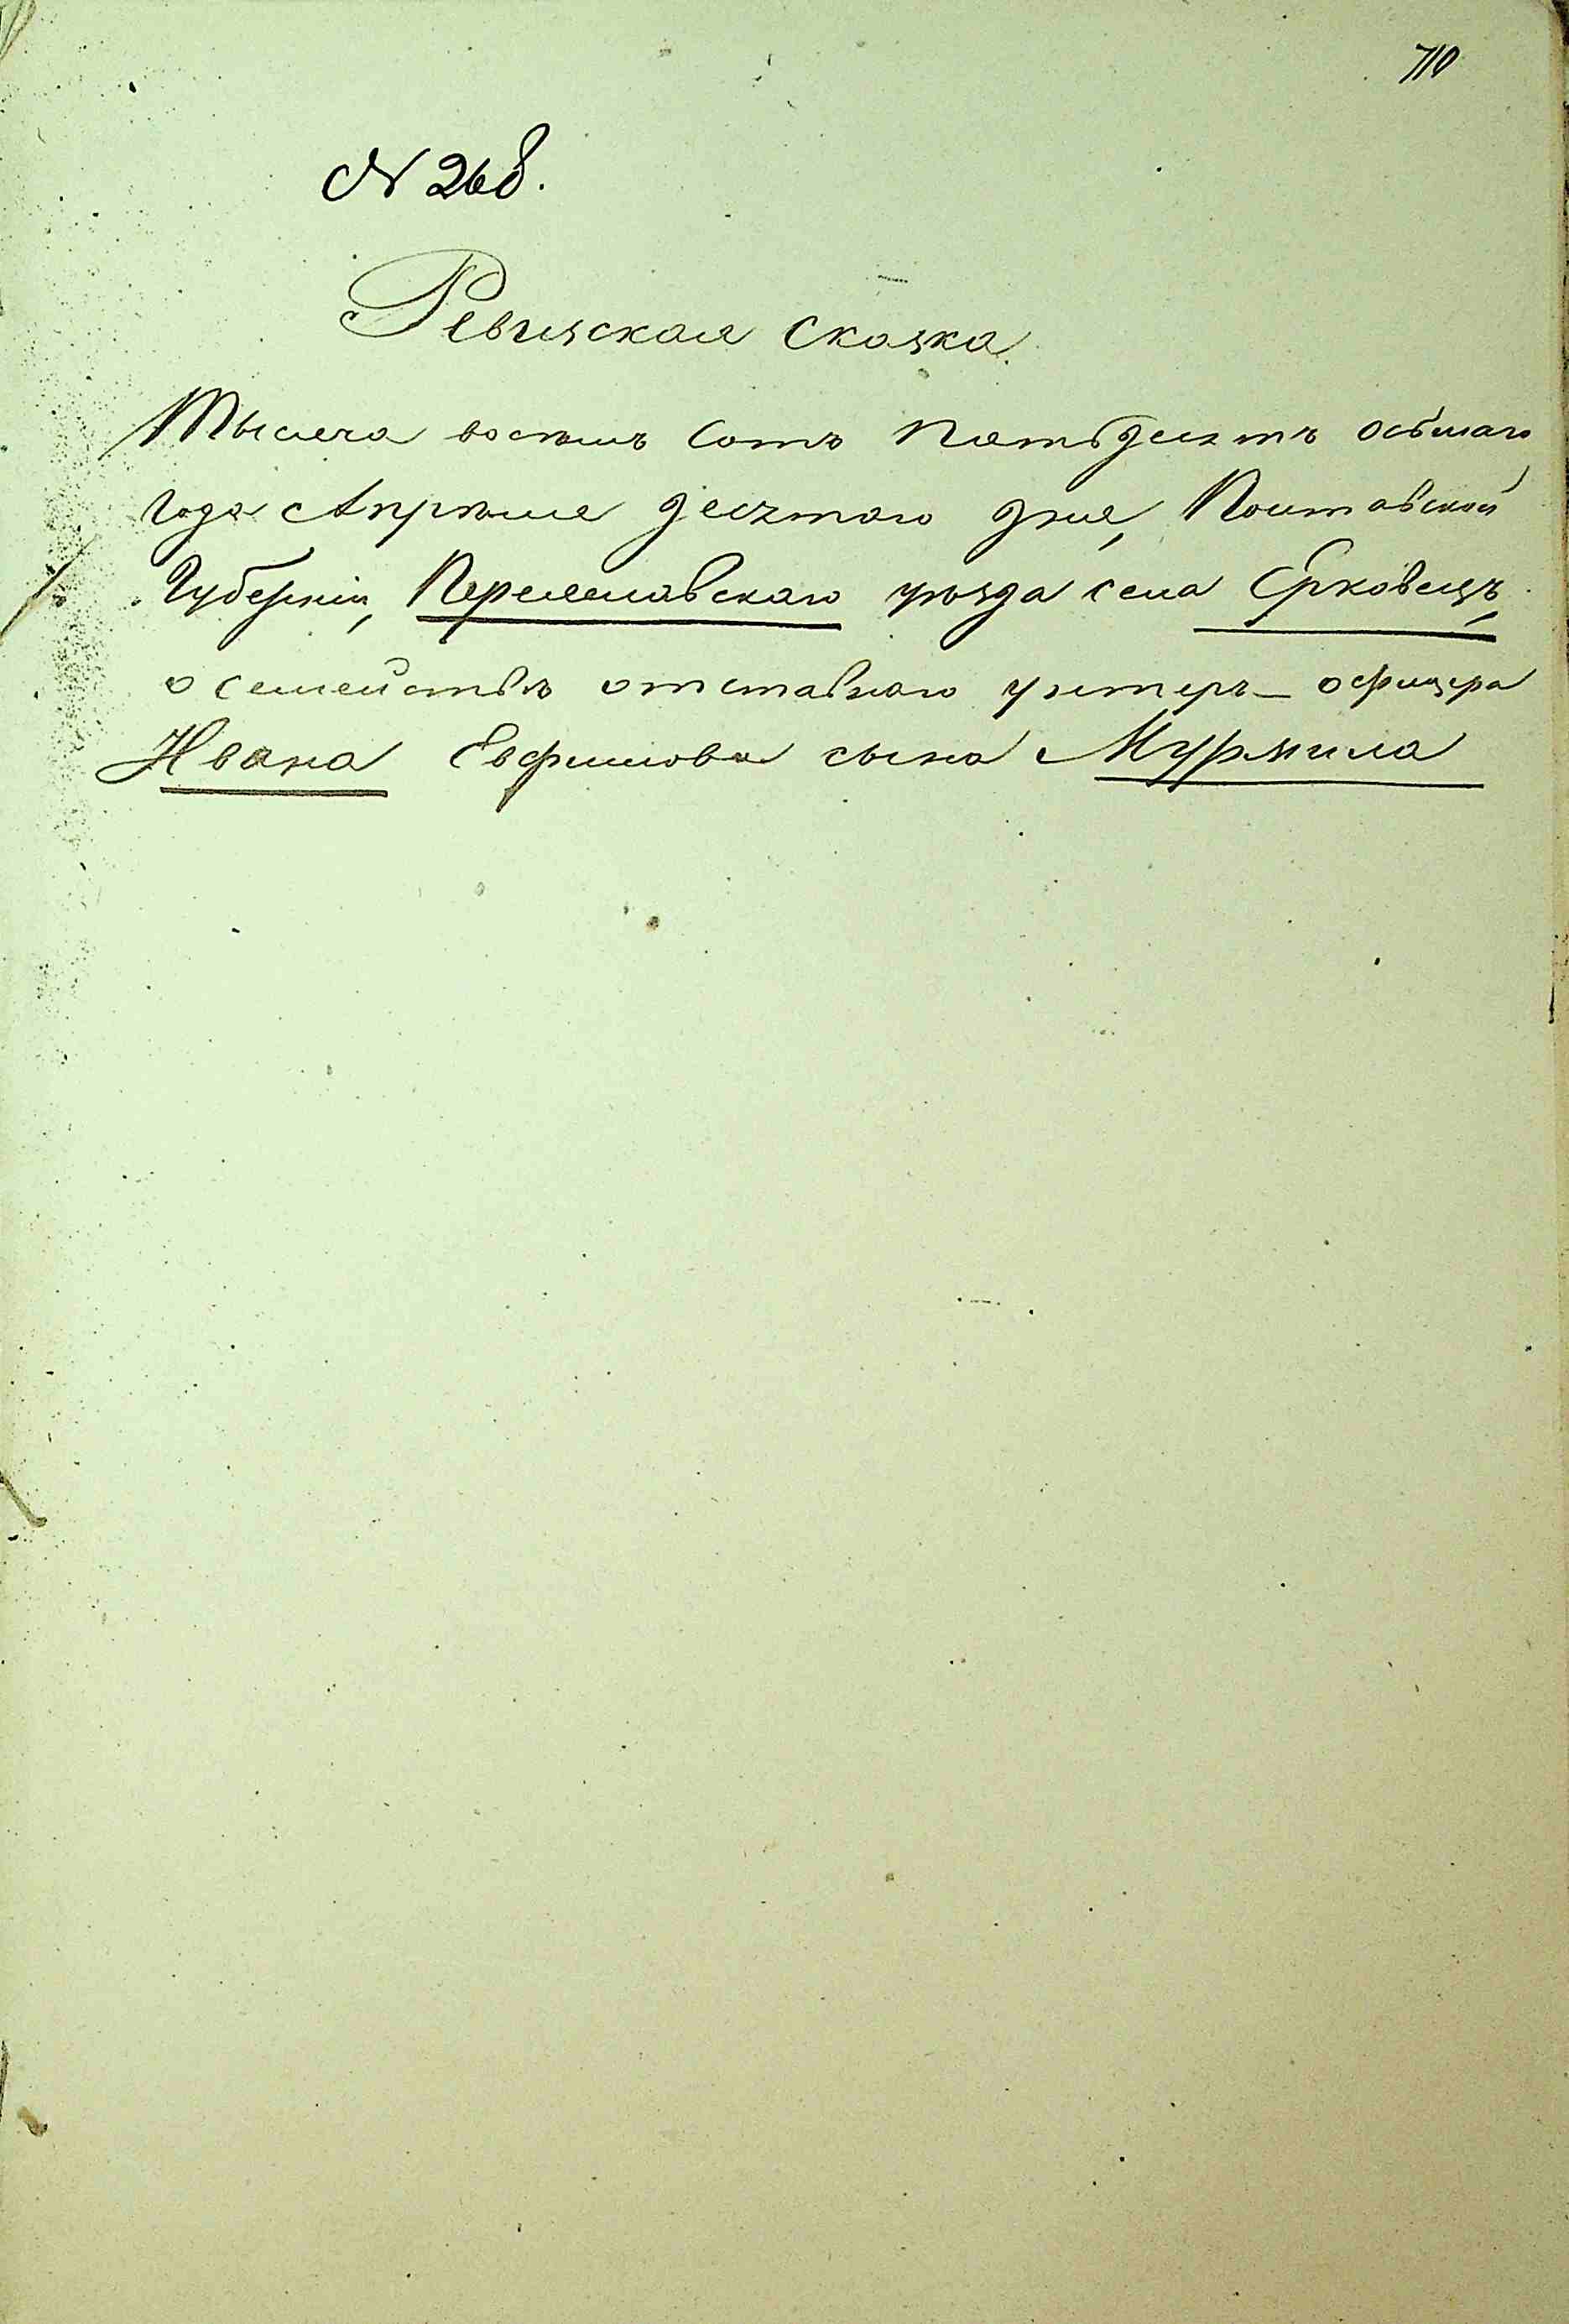 710
№ 268.
Ревизская сказка.
Тысяча восемь сотъ пятьдесятъ осьмаго
года Апрѣля десятаго дня, Полтавской
Губерніи, Переяславскаго уѣзда села Ерковецъ
о семействѣ отставнаго унтеръ-офицера
Ивана Евфимова сына Мурмила